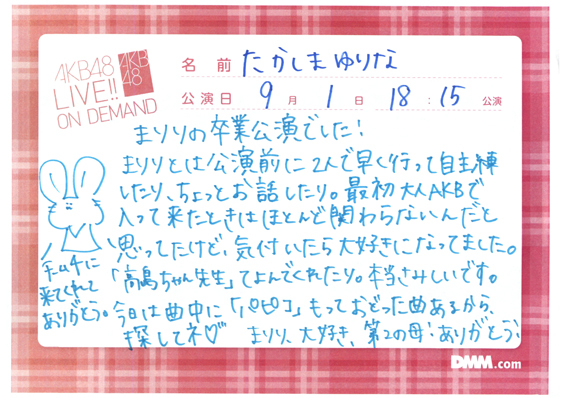 AKB48
LIVE!!
ON DEMAND
AKB
48
名 前 たかしまゆりな
公演日 9月 1日 18:15 公演
まりりの卒業公演でした!
まりりとは公演前に2人で早く行って自主練
したり、ちょっとお話したり。最初大人AKBで
入って来たときはほとんど関わらないんだと
思ってたけど、気付いたら大好きになってました。
「高島ちゃん先生」てよんでくれたり。本当さみしいです。
今日は曲中に「パピコ」もっておどった曲あるから、
探してネ♡ まりり、大好き、第2の母!ありがとう、
チーム4に
来てくれて
ありがとう。
DMM.com